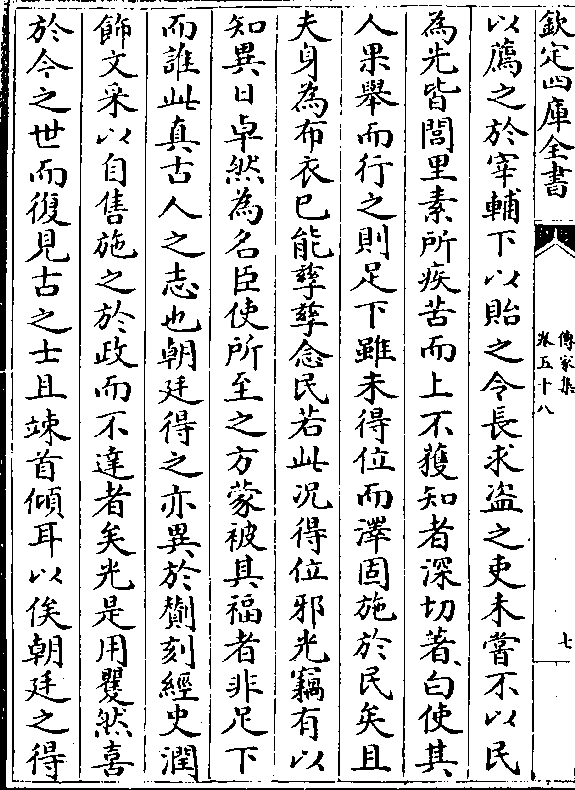 欽定四庫全書
傳家集
卷五十八
七
以薦之於宰輔下以貽之令長求盗之吏未嘗不以民
為光皆閭里素所疾苦而上不獲知者深切著白使其
人果舉而行之則足下雖未得位而澤固施於民矣且
夫身為布衣已能孳孳念民若此况得位邪光竊有以
知異日卓然為名臣使所至之方蒙被其福者非足下
而誰此真古人之志也朝廷得之亦異於劗刻經史潤
飾文采以自售施之於政而不達者矣光是用矍然喜
於今之世而復見古之士且竦首傾耳以俟朝廷之得